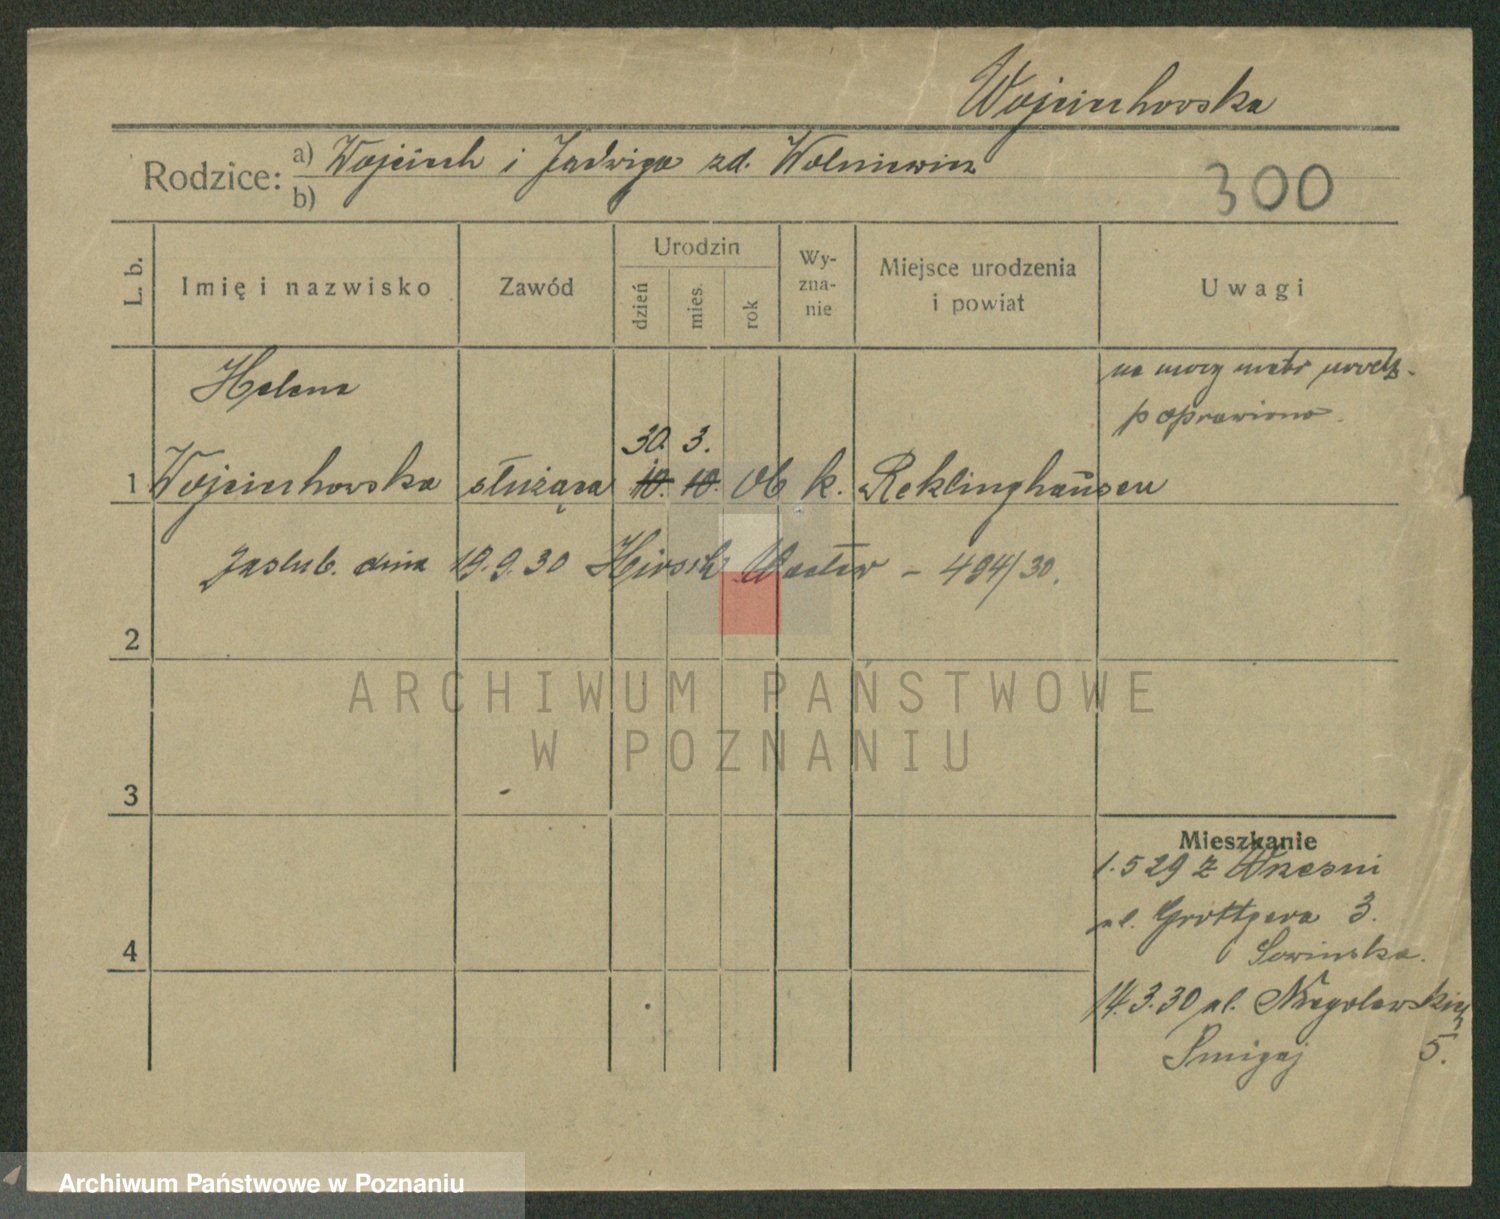 Wojciechowska
Rodzice: a) Wojciech i Jadwiga zd. Wolniewicz
b)
300
L. b.
Imię i nazwisko
Zawód
Urodzin
dzień
mies.
rok
Wy-
zna-
nie
Miejsce urodzenia
i powiat
Uwagi
Helena
na mocy metr. urodz.
poprawiono.
30. 3.
1 Wojciechowska służąca 10. 10. 06 k. Reklinghausen
Zaślub. dnia 19.9.30 Hirsch Wacław – 494/30.
2
ARCHIWUM PAŃSTWOWE
W POZNANIU
3
Mieszkanie
1.5 29 z Wrześni
ul. Grottgera 3.
Sowińska.
4
14.3.30 ul. Niegolewskich
Śmigaj 5.
Archiwum Państwowe w Poznaniu